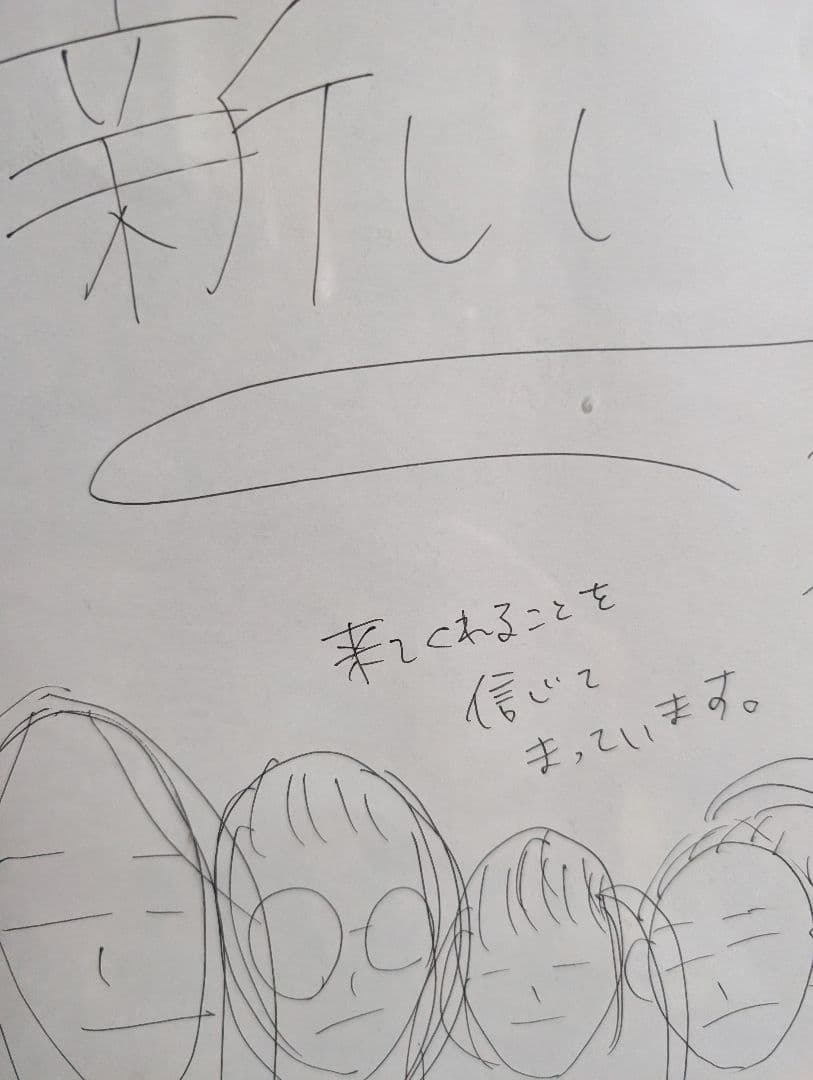 新しい
来てくれることを
信じて
まっています。